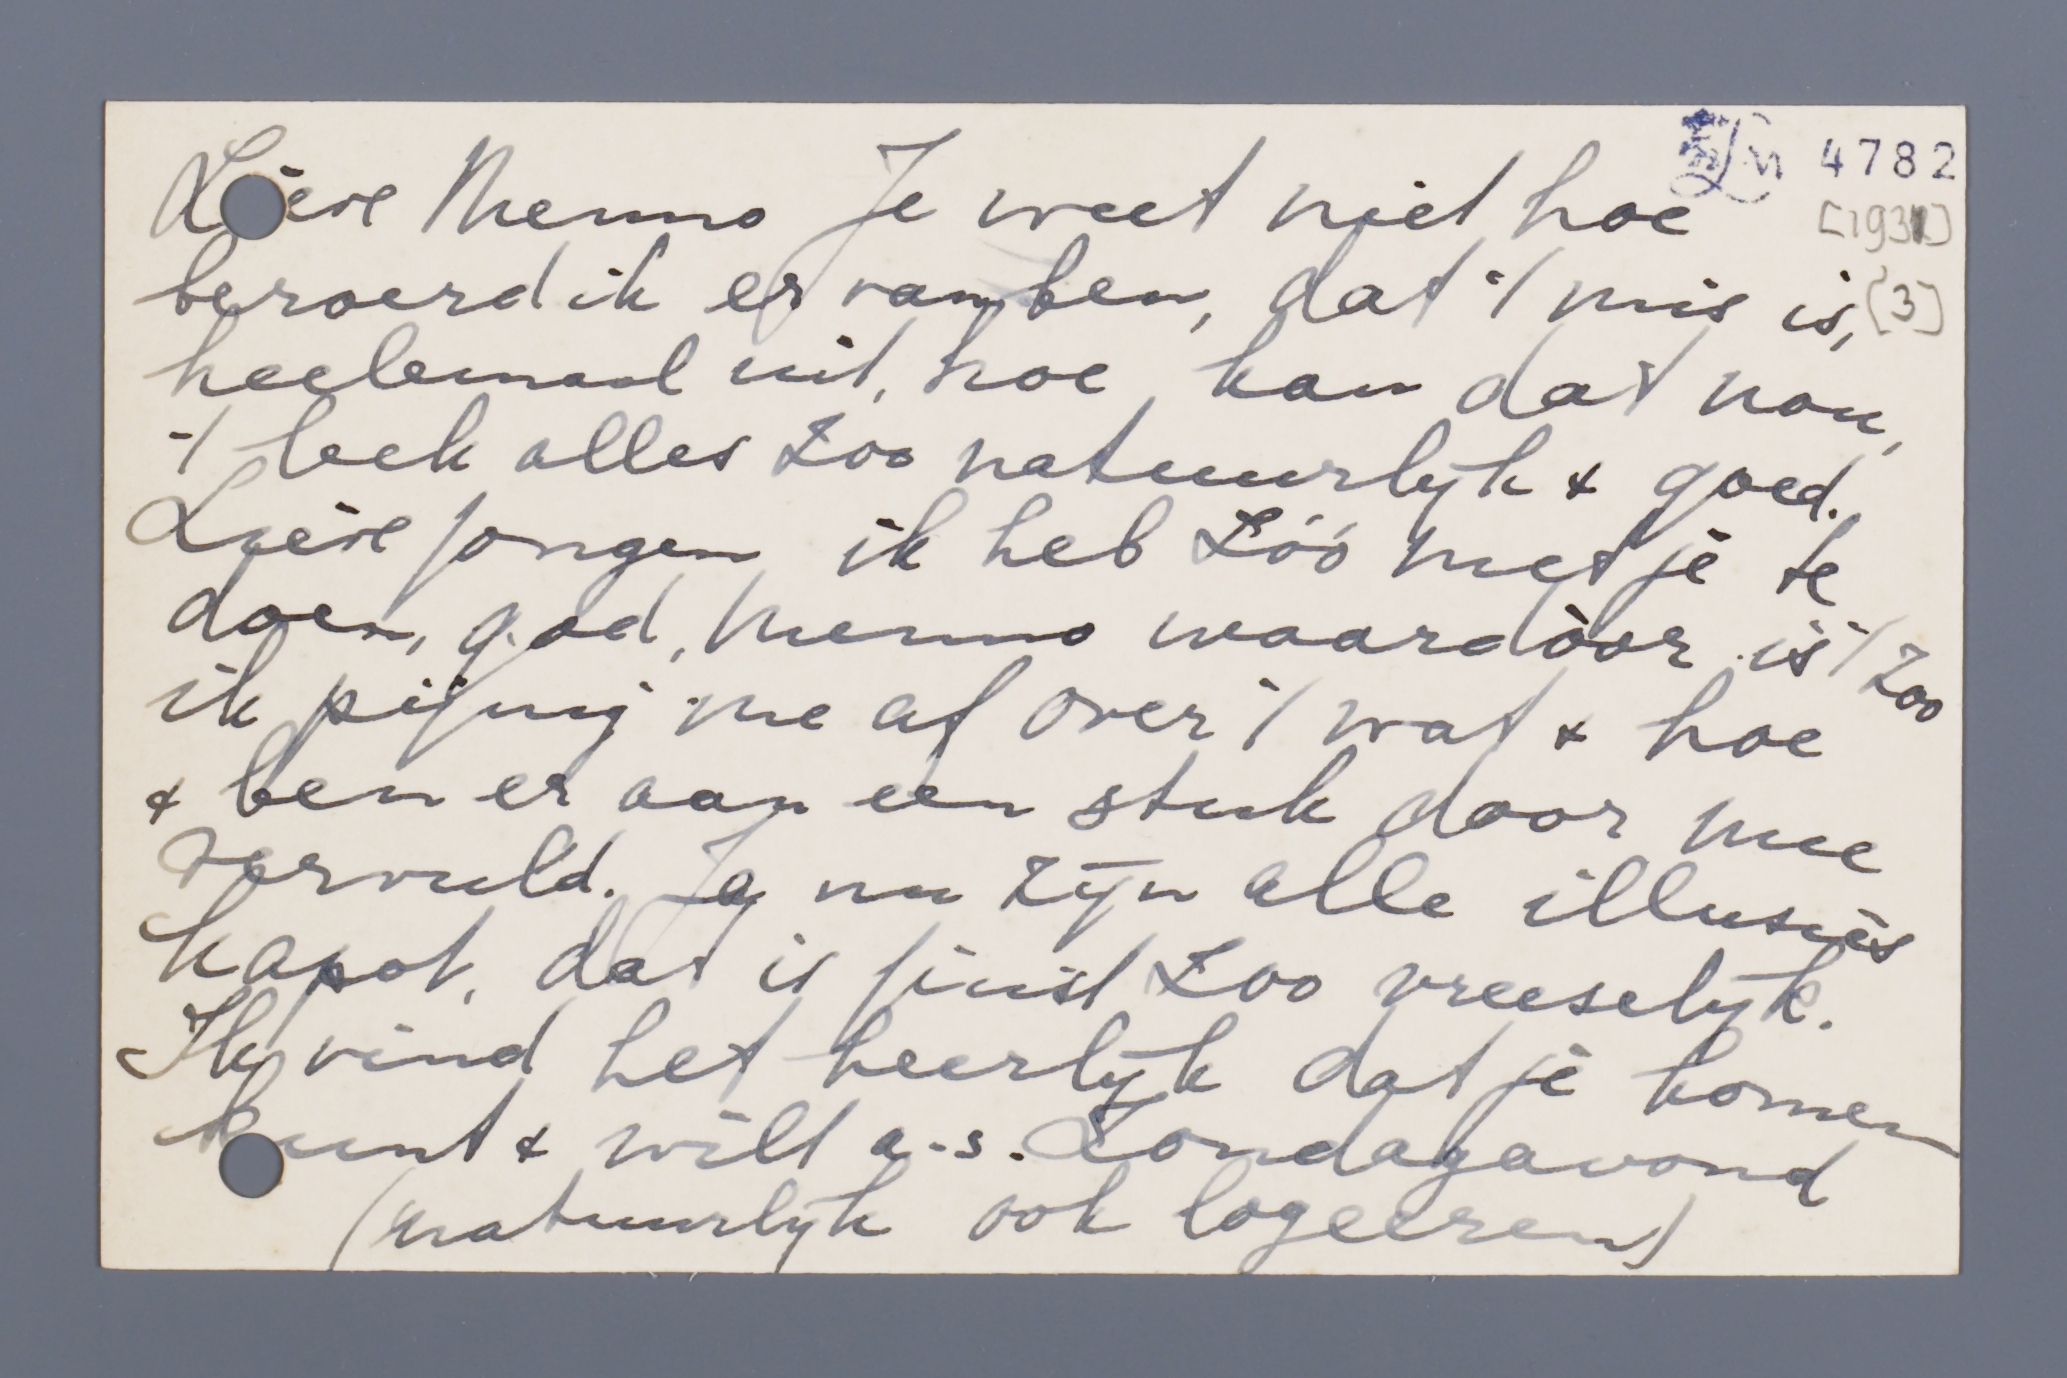 Lieve Menno Je weet niet hoe
4782
[1931]
beroerd ik er van ben, dat 't mis is,
[3]
heelemaal uit, hoe kan dat nou,
't leek alles zoo natuurlijk & goed.
Lieve jongen ik heb zóó met je te
doen, god, Menno waardòor is 't zoo
ik pijnig me af over 't wat & hoe
& ben er aan een stuk door mee
vervuld. Ja nu zijn alle illusies
kapot, dat is juist zoo vreeselijk.
Ik vind het heerlijk dat je komen
kunt & wilt a.s. Zondagavond
(natuurlijk ook logeeren)